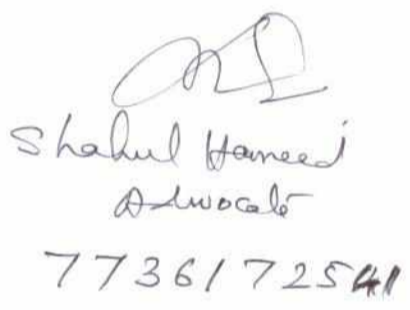 Shahul Hameed
Advocate
7736172541